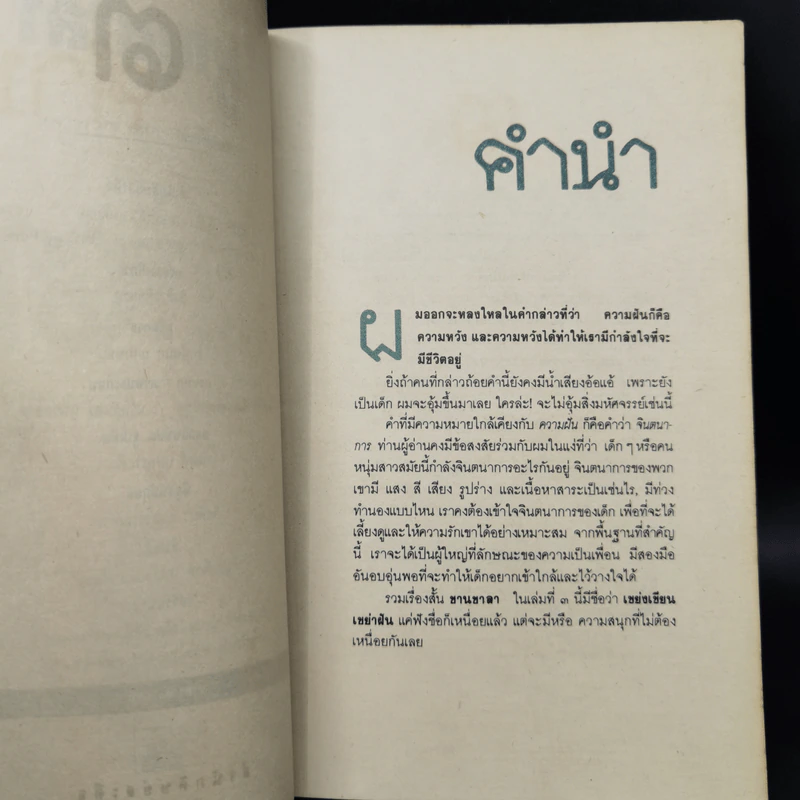 คำนำ
ผมออกจะหลงใหลในคำกล่าวที่ว่า ความฝันก็คือ
ความหวัง และความหวังได้ทำให้เรามีกำลังใจที่จะ
มีชีวิตอยู่
ยิ่งถ้าคนที่กล่าวถ้อยคำนี้ยังคงมีน้ำเสียงอ้อแอ้ เพราะยัง
เป็นเด็ก ผมจะอุ้มขึ้นมาเลย ใครล่ะ! จะไม่อุ้มสิ่งมหัศจรรย์เช่นนี้
คำที่มีความหมายใกล้เคียงกับ ความฝัน ก็คือคำว่า จินตนา-
การ ท่านผู้อ่านคงมีข้อสงสัยร่วมกับผมในแง่ที่ว่า เด็ก ๆ หรือคน
หนุ่มสาวสมัยนี้กำลังจินตนาการอะไรกันอยู่ จินตนาการของพวก
เขามี แสง สี เสียง รูปร่าง และเนื้อหาสาระเป็นเช่นไร, มีท่วง
ทำนองแบบไหน เราคงต้องเข้าใจจินตนาการของเด็ก เพื่อที่จะได้
เลี้ยงดูและให้ความรักเขาได้อย่างเหมาะสม จากพื้นฐานที่สำคัญ
นี้ เราจะได้เป็นผู้ใหญ่ที่ลักษณะของความเป็นเพื่อน มีสองมือ
อันอบอุ่นพอที่จะทำให้เด็กอยากเข้าใกล้และไว้วางใจได้
รวมเรื่องสั้น ชานชาลา ในเล่มที่ ๓ นี้มีชื่อว่า เขย่งเขียน
เขย่าฝัน แค่ฟังชื่อก็เหนื่อยแล้ว แต่จะมีหรือ ความสนุกที่ไม่ต้อง
เหนื่อยกันเลย